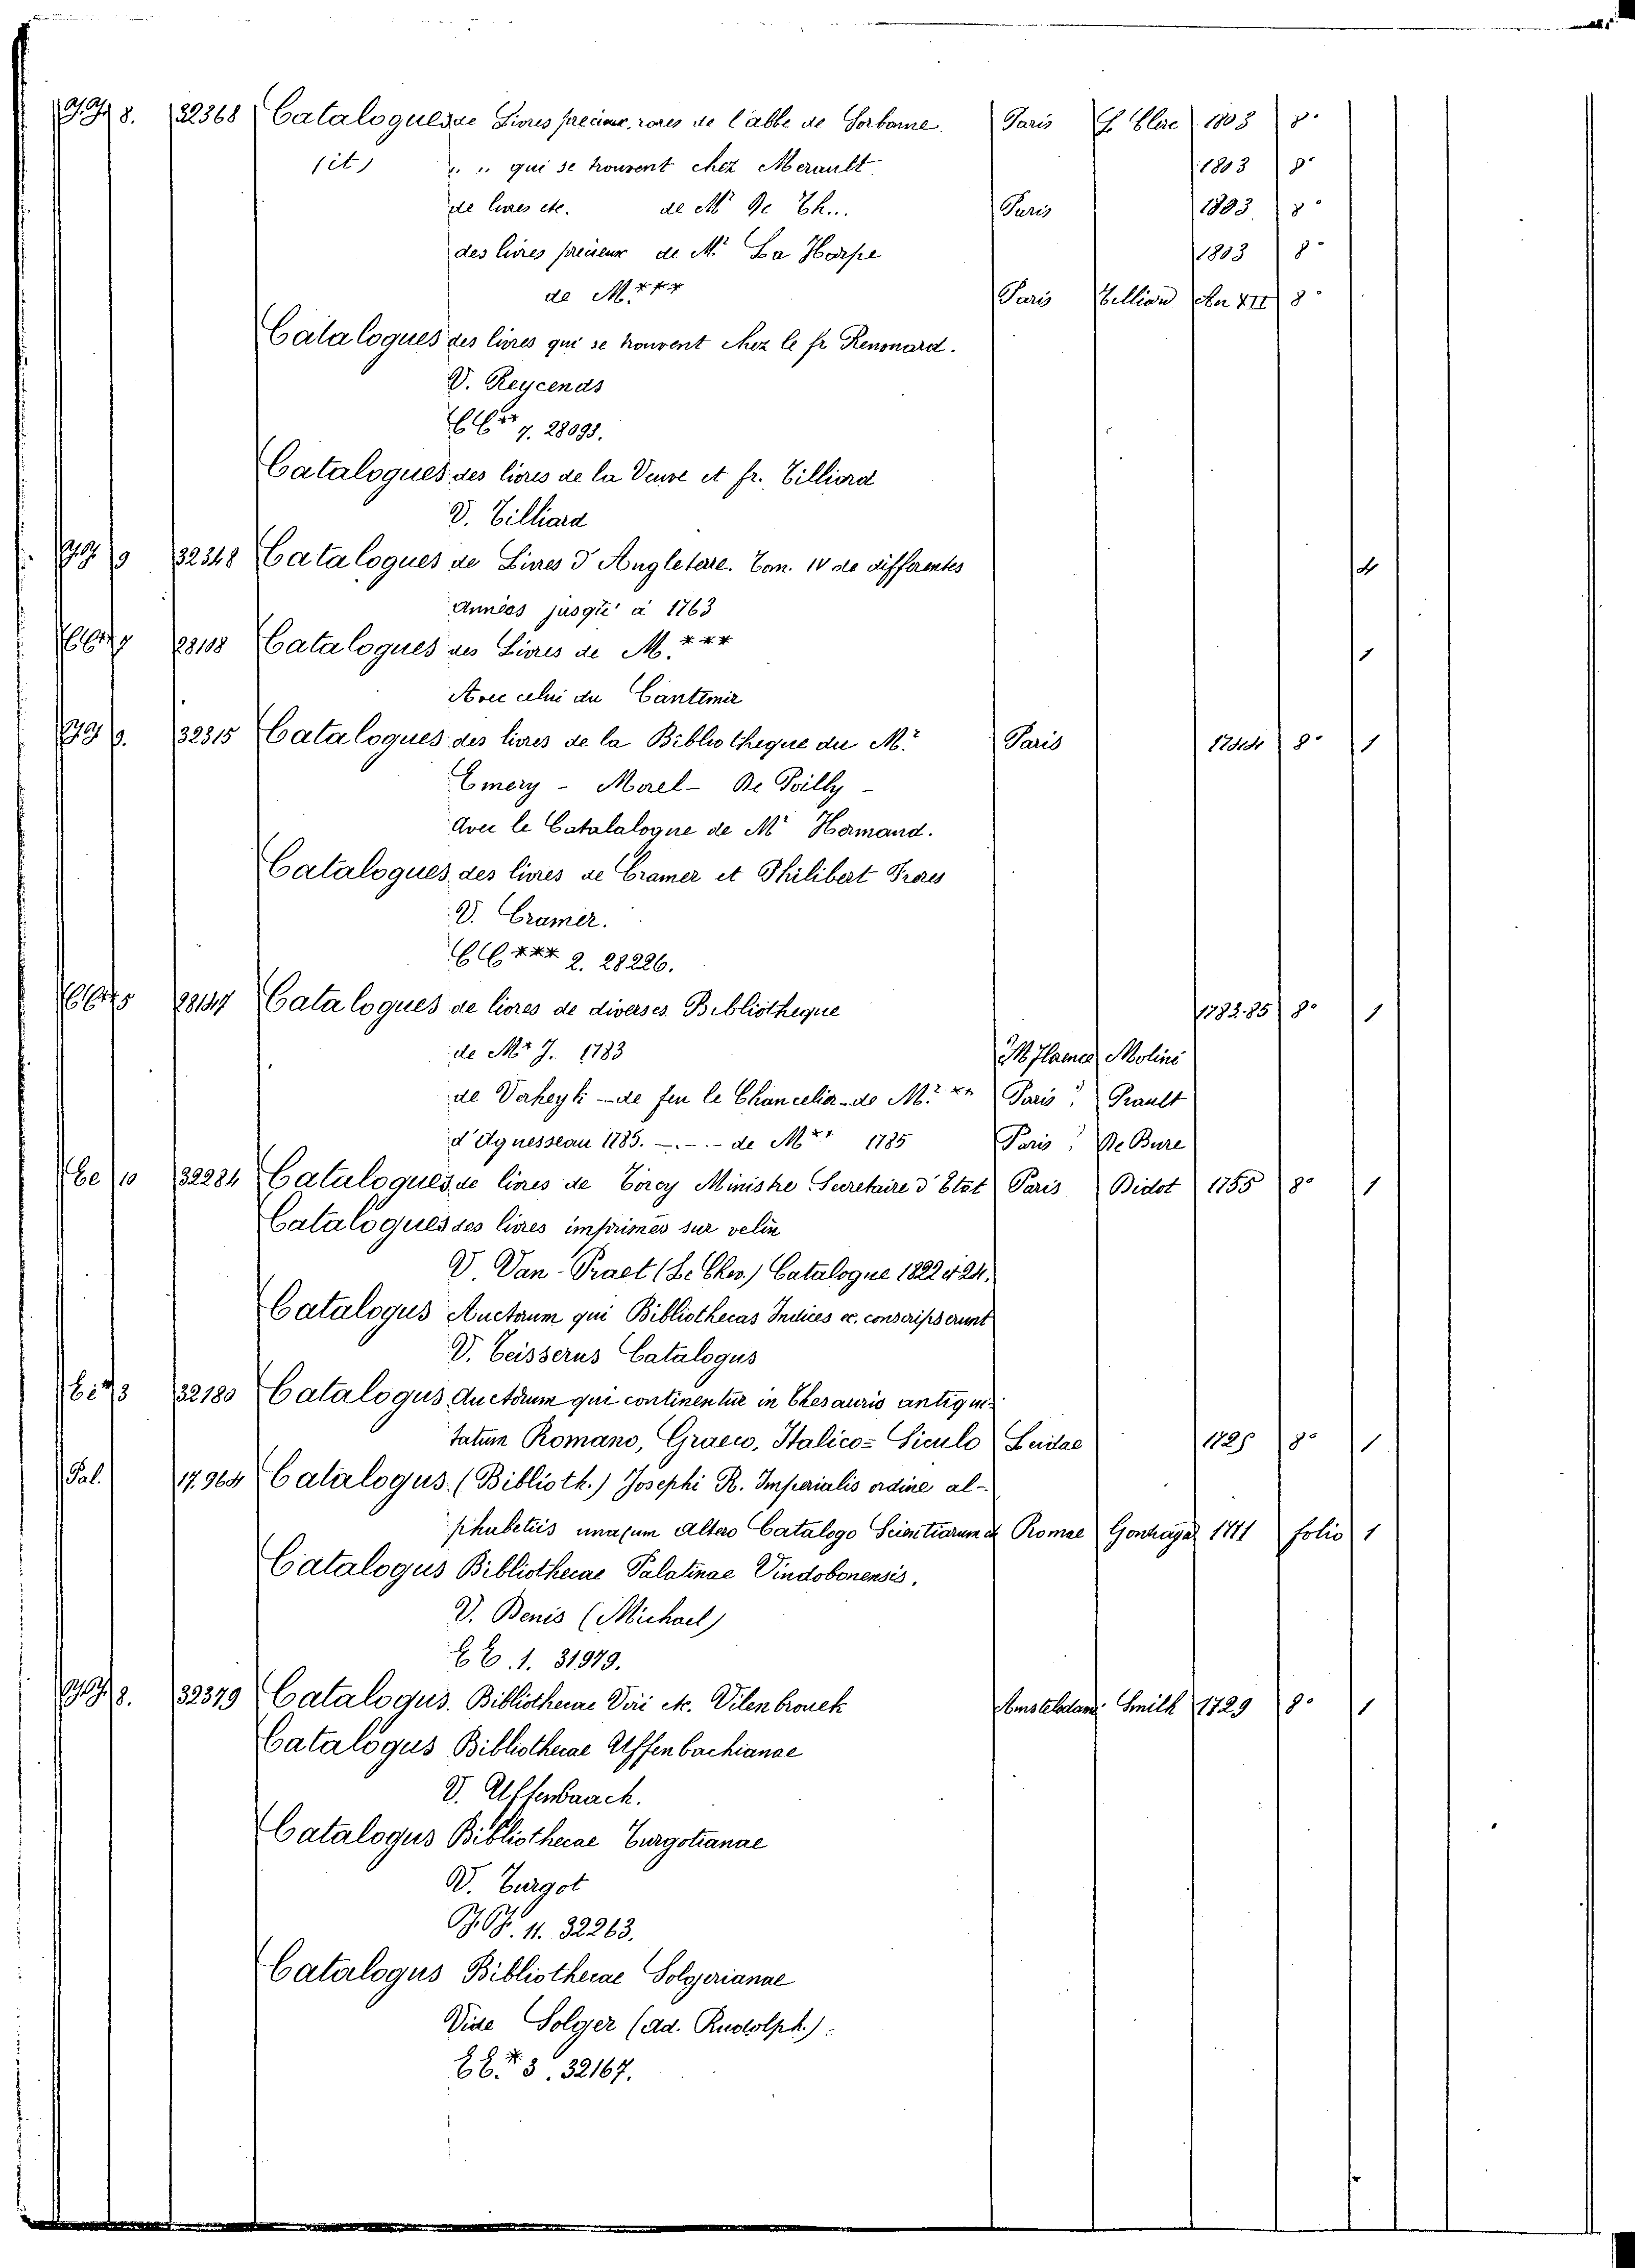 8. 32368 Catalogues de Livres precieux, rares de l'abbe de Sorbonne Paris 1803 8º
(it) " " qui se trouvent chez Merault 1803 8º
de livres etc. de Mr De Th... Paris 1803 8º
des livres precieux de Mr La Harpe 1803 8º
de M.*** Paris Tilliard An XII 8º
Catalogues des livres qui se trouvent chez le fr Renouard.
V. Reycends
7. 28098.
Catalogues des livres de la Veuve et fr. Tilliard
V. Tilliard
9 32348 Catalogues de Livres d'Angleterre. Tom. IV de differentes 4
Années jusqu' à 1763
28108 Catalogues des Livres de M.*** 1
Avec celui du Cantemir
9. 32315 Catalogues des livres de la Bibliotheque du Mr Paris 1744 8º 1
Emery - Morel - De Pailly -
Avec le Catalalogue de Mr Hermand.
Catalogues des livres de Cramer et Philibert Freres
V. Cramer.
*** 2. 28226.
28147 Catalogues de livres de diverses Bibliotheque 1783.85 8º 1
de Mr J. 1783 Molini
de Verheyk - de feu le Chancelier - de Mr ** Paris, Prault
d'Aguesseau 1785. -.-.- de M** 1785 Paris, De Bure
10 32284 Catalogues de livres de Torcy Ministre Secretaire d'Etat Paris Didot 1755 8º 1
Catalogues des livres imprimés sur velin
V. Van-Praet (Le Cher.) Catalogue 1822 et 24.
Catalogus Auctorum qui Bibliothecas Indices ec. conscripserunt
V. Teisserus Catalogus
32180 Catalogus Auctorum qui continentur in Thesauris antiqui-
tatum Romano, Graeco, Italico= Siculo Leidae 1725 8º 1
Pal. 17.964 Catalogus (Biblioth.) Josephi R. Imperialis ordine al-
phabetiis unacum altero Catalogo Scientiarum et Romae Gonzagae 1711 folio 1
Catalogus Bibliothecae Palatinae Vindobonensis.
V. Denis (Michael)
1. 31979.
8. 32379 Catalogus. Bibliothecae Viri etc. Vilenbrouck Amstelodami Smith 1729 8º 1
Catalogus Bibliothecae Uffenbachianae
V. Uffenbaach.
Catalogus Bibliothecae Turgotianae
V. Turgot
11. 32263.
Catalogus Bibliothecae Solgerianae
Vide Solger (Ad. Rudolph.).
3. 32167.